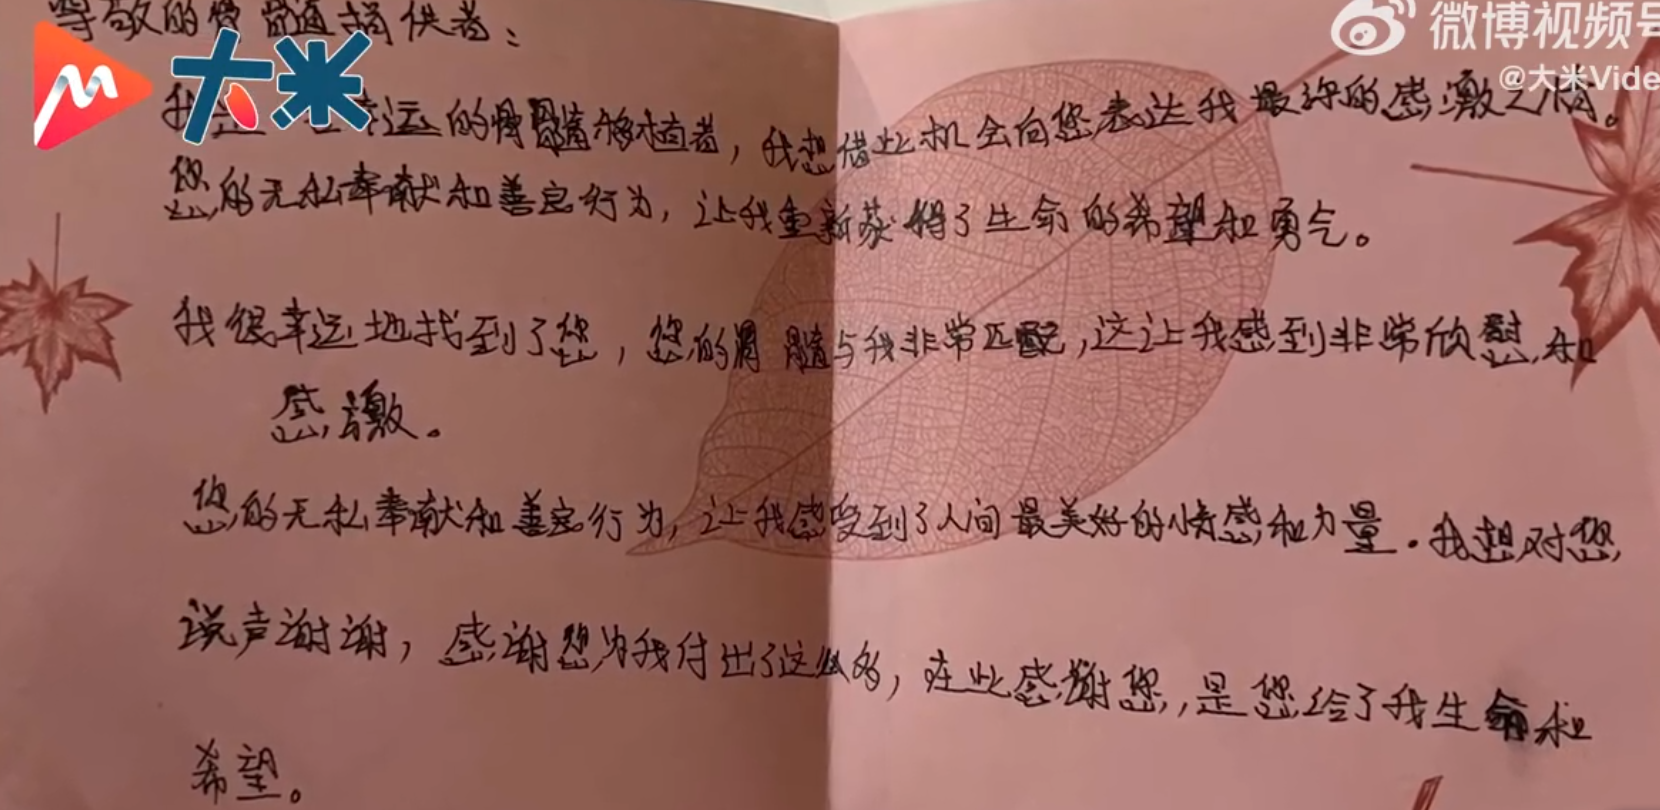 尊敬的骨髓捐供者：
微博视频号
@大米Vide
大米
我是一 幸运的骨髓移植者，我想借此机会向您表达我最深的感激之情。
您的无私奉献和善良行为，让我重新获得了生命的希望和勇气。
我很幸运地找到了您，您的骨髓与我非常匹配，这让我感到非常欣慰和
感激。
您的无私奉献和善良行为，让我感受到了人间最美好的情感和力量。我想对您
说声谢谢，感谢您为我付出了这么多，在此感谢您，是您给了我生命和
希望。